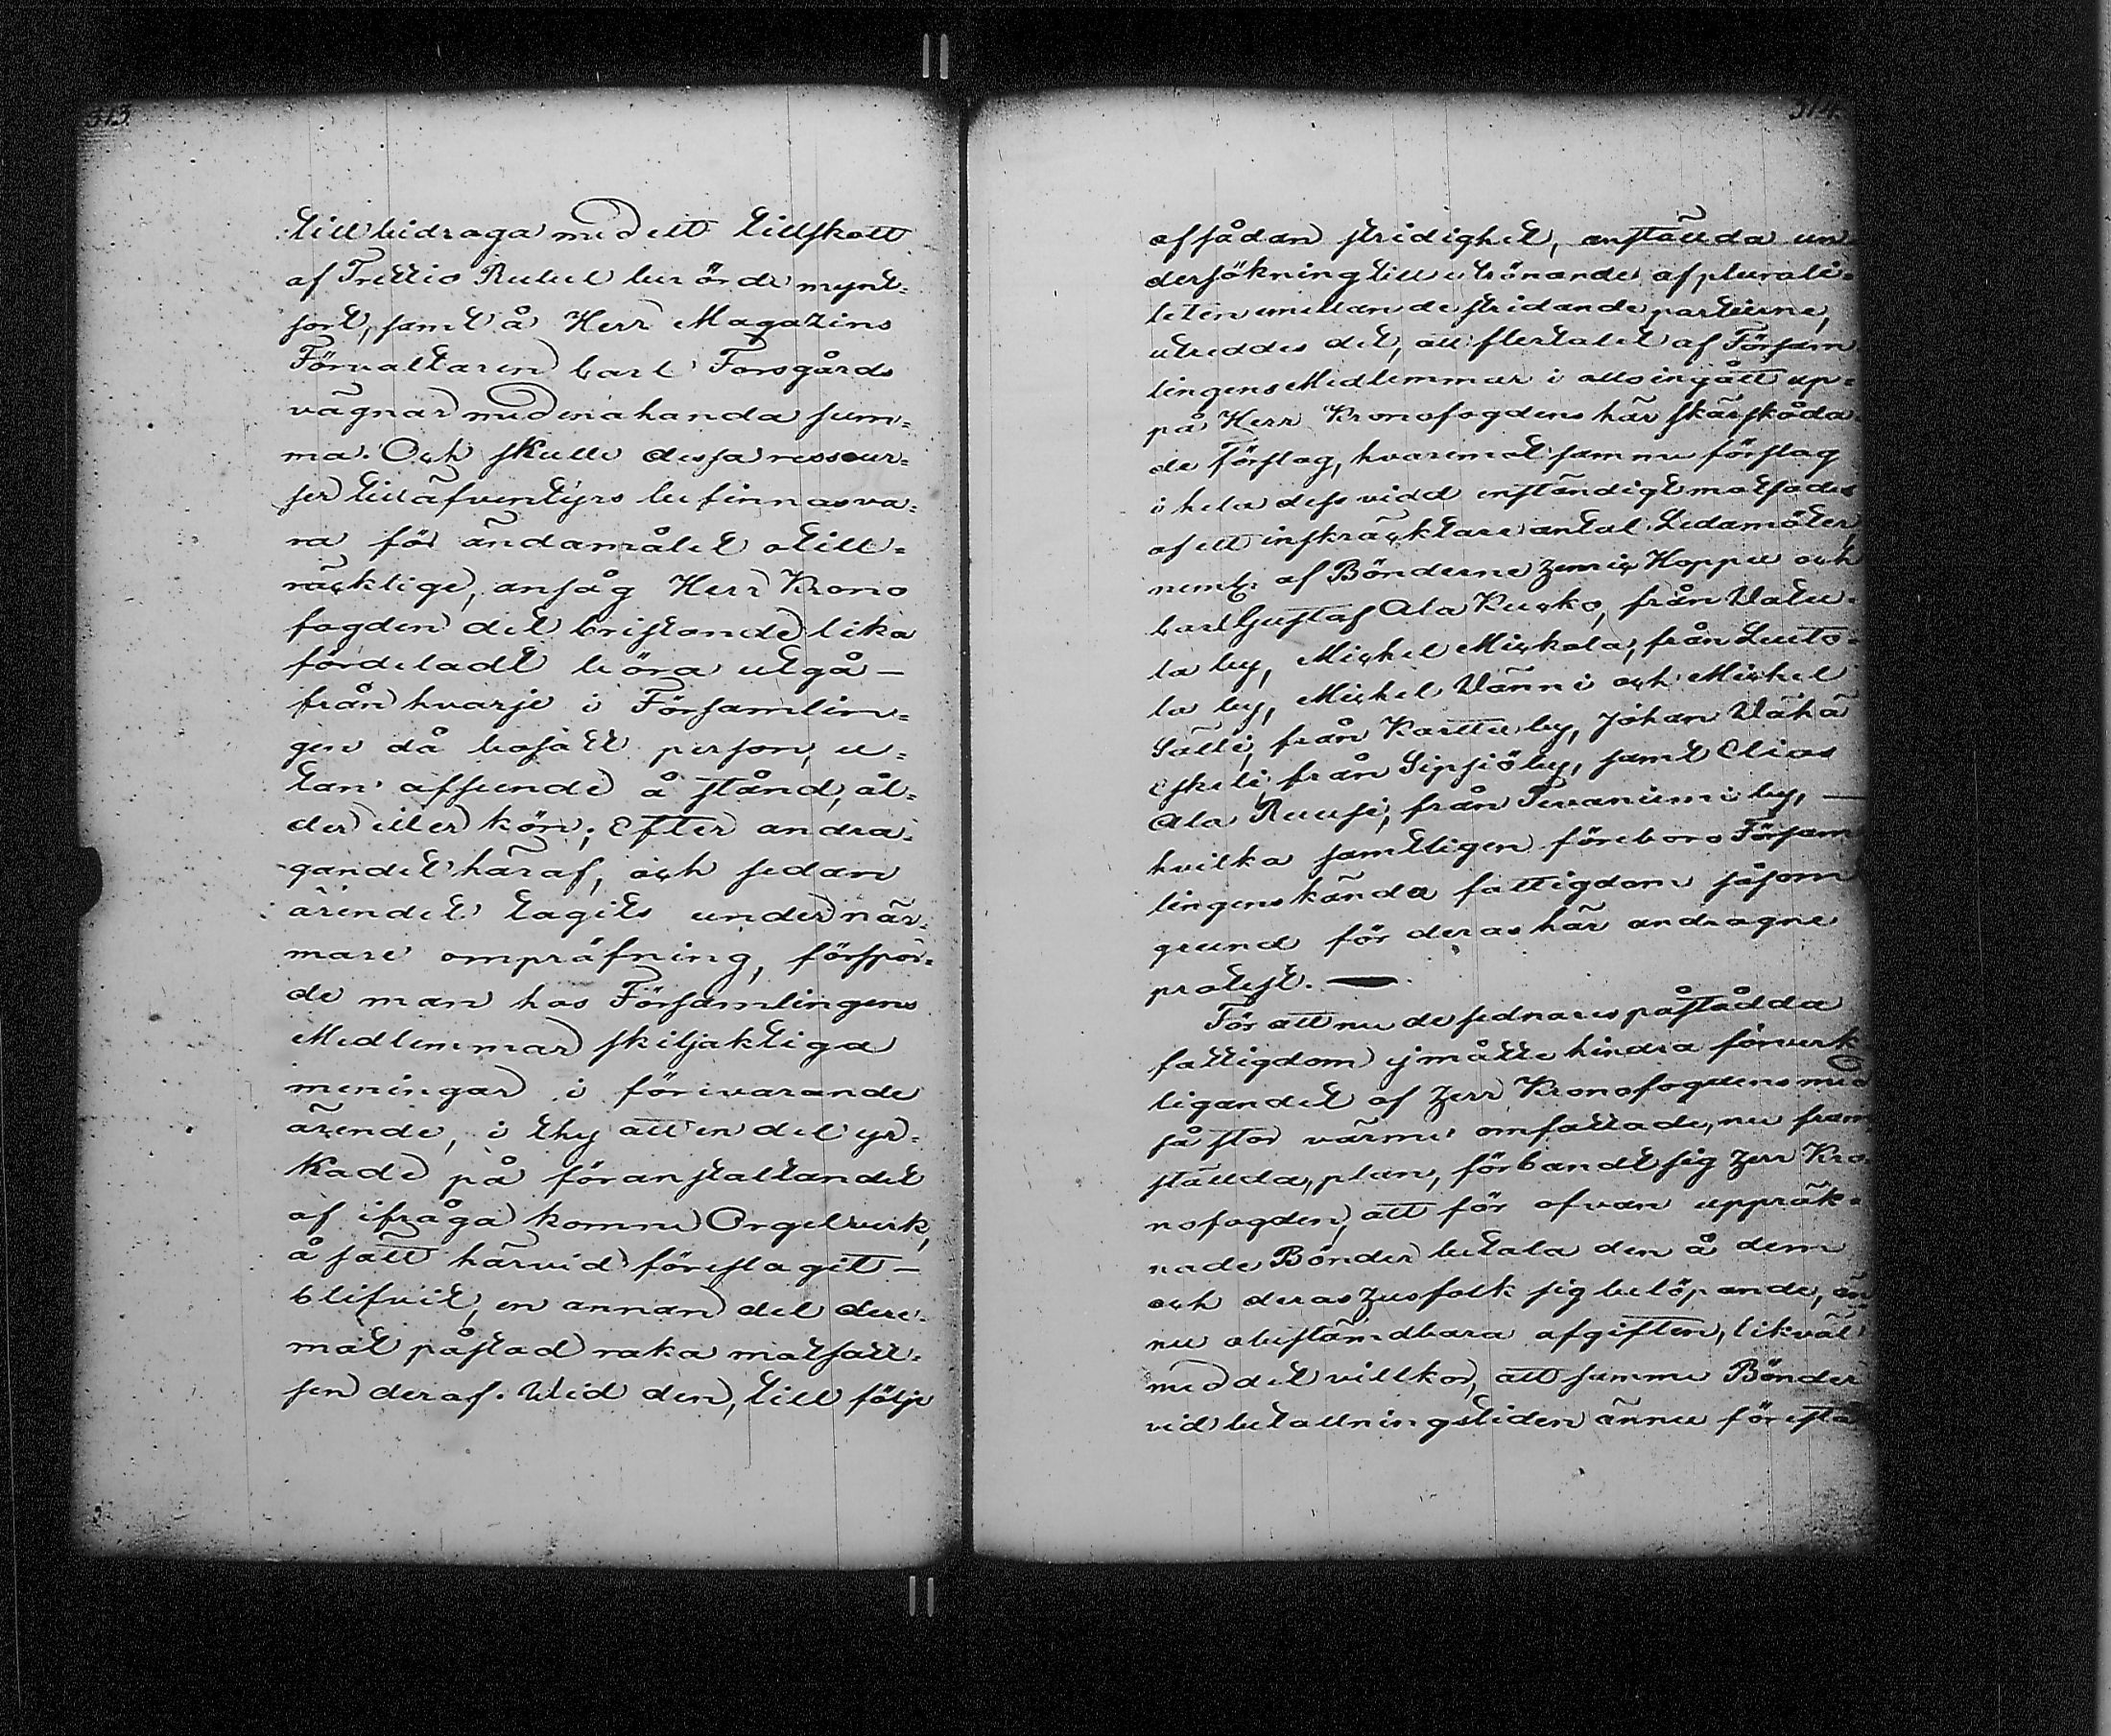 313.
till bidraga med ett tillskott
af Trettio Rubel berörde mynt=
sort, samt å Herr Magazins
Förvaltaren Carl Forsgårds
vägnar med enahanda sum=
ma. Och skulle dessa ressour=
ser till äfventyrs befinnas va=
ra för ändamålet otill=
räcklige, ansåg Herr Krono
fogden det bristande lika
fördeladt böra utgå —
från hvarje i Församlin=
gen då bosatt person, u=
tan afseende å stånd, ål=
der eller kön; Efter andra=
gandet häraf, och sedan
ärendet tagits under när=
mare ompröfning, förspor=
de man hos Församlingens
Medlemmar skiljaktiga
meningar i förevarande
ärende, i thy att en del yr=
kade på föranstaltandet
af ifråga komne Orgelverk,
å sätt härvid föreslagit —
blifvit, en annan del dere=
mot påstod raka motsatt=
sen deraf. Wid den, till följe
314.
af sådan stridighet, anställda un=
dersökning till utrönande af plurali=
teten emellan de stridande partierne,
utreddes det, att flertalet af Försam
lingens Medlemmar i allo ingått up=
på Herr Kronofogdens här skärskåda=
de förslag, hvaremot samma förslag
i hela dess vidd enständigt motsades
af ett inskräcktare antal Ledamöter,
neml. af Bönderne Henric Hoppu och
Carl Gustaf Ala Kucko, från Watu=
la by, Michel Mickola, från Leuto=
la by, Michel Wänni och Michel
Sälli, från Karttu by, Johan Wähä
Eskeli, från Sipsiö by, samt Elias
Ala Ruusi, från Tevaniemi by, —
hvilka samteligen föreburo Försam
lingens kända fattigdom såsom
grund för deras här andragne
protest. —
För att nu de sednares påstådda
fattigdom ej måtte hindra förverk
ligandet af Herr Kronofogdens med
så stor värme omfattade, nu fram
ställda, plan, förbandt sig Herr Kro=
nofogden, att för ofvan uppräk=
nade Bönder betala den å dem
och deras Husfolk sig belöpande, än
nu obestämdbara afgiften, likväl
med det villkor, att samme Bönder
vid betallningstiden ännu förestå